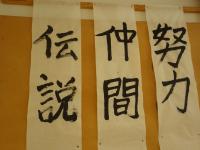 努力
仲間
伝説